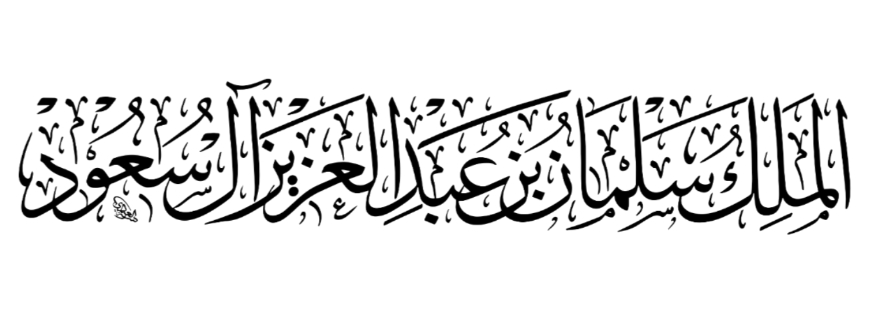 الملك سلمان بن عبدالعزيز آل سعود